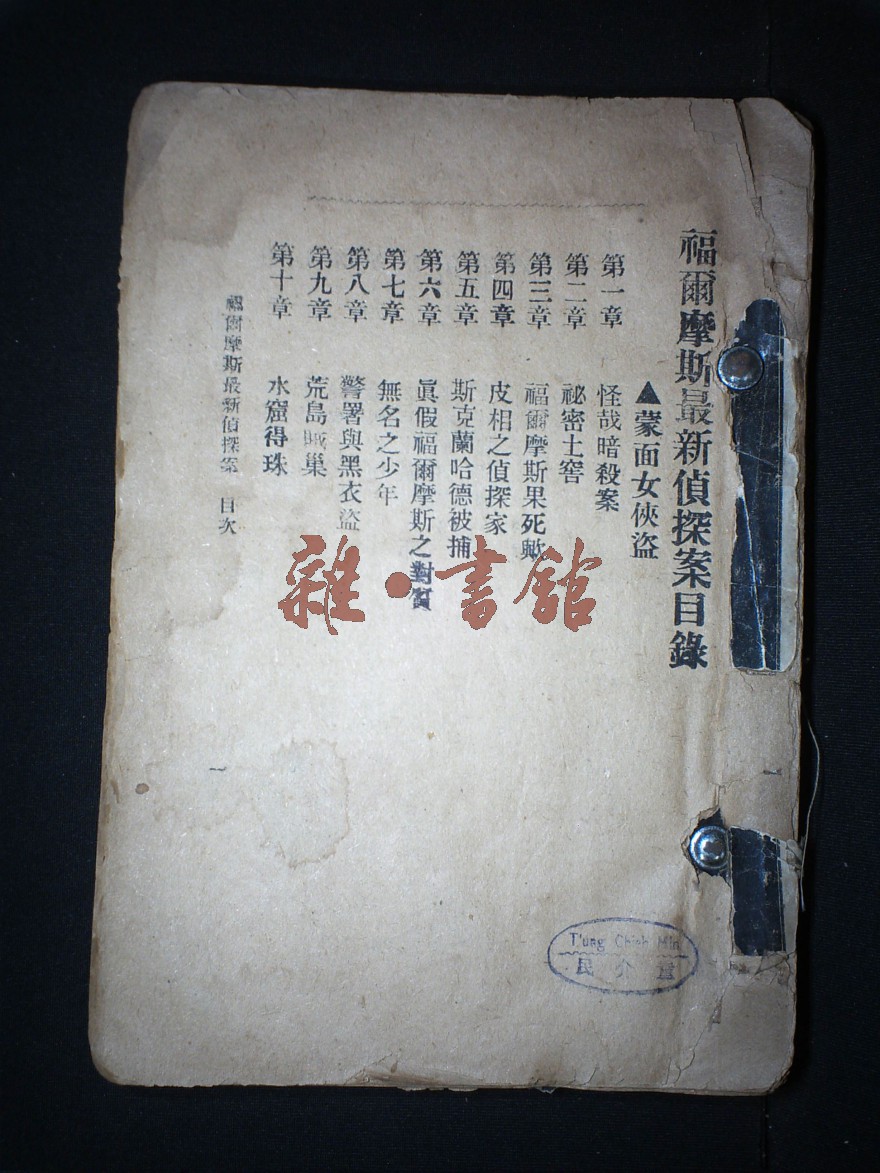 福爾摩斯最新偵探案目錄
▲蒙面女俠盜
第一章 怪哉暗殺案
第二章 祕密土窖
第三章 福爾摩斯果死歟
第四章 皮相之偵探家
第五章 斯克蘭哈德被捕
第六章 眞假福爾摩斯之對質
第七章 無名之少年
第八章 警署與黑衣盜
第九章 荒島賊巢
第十章 水窟得珠
福爾摩斯最新偵探案 目次
一
雜·書館
T'ung Chieh Min
童介民